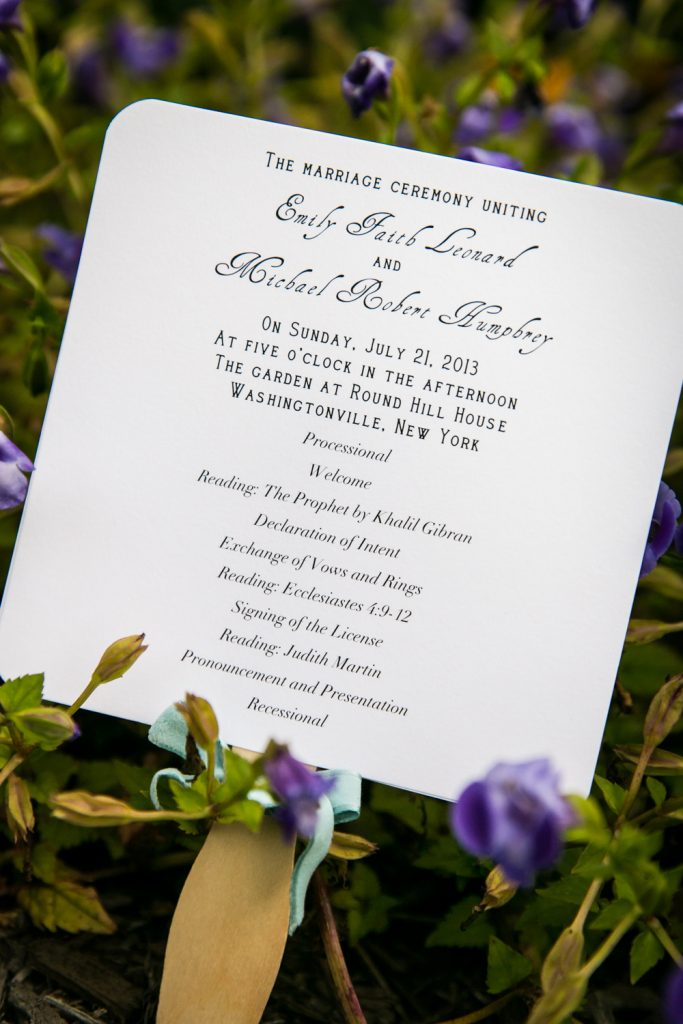 The marriage ceremony uniting
Emily Faith Leonard
and
Michael Robert Humphrey
On Sunday, July 21, 2013
At five o'clock in the afternoon
The garden at Round Hill House
Washingtonville, New York
Processional
Welcome
Reading: The Prophet by Khalil Gibran
Declaration of Intent
Exchange of Vows and Rings
Reading: Ecclesiastes 4:9-12
Signing of the License
Reading: Judith Martin
Pronouncement and Presentation
Recessional